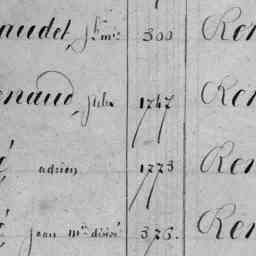 audet, 300 Ren
enaud, Jules 1747 Ren
é adrien 1773 Ren
é jean m.in désiré 376. Ren